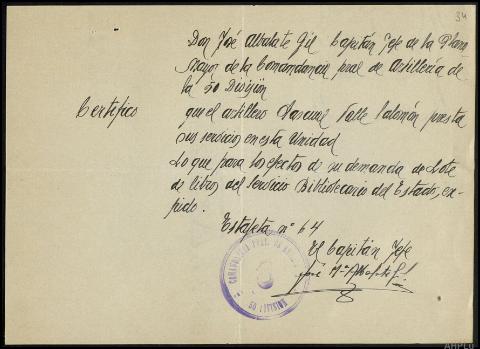 34
Don José Albalate Gil Capitán Jefe de la Plana
Mayor de la Comandancia pral de Artillería de
la 50 División
Certifico
que el artillero Valle Salomón presta
sus servicios en esta Unidad
Lo que para los efectos de su demanda de Lote
de libros del Servicio Bibliotecario del Estado, ex-
pido.
Estafeta nº 64
El Capitán Jefe
José Mª Albalate Gil
COMANDANCIA PRAL DE
50 DIVISION
AHPLG